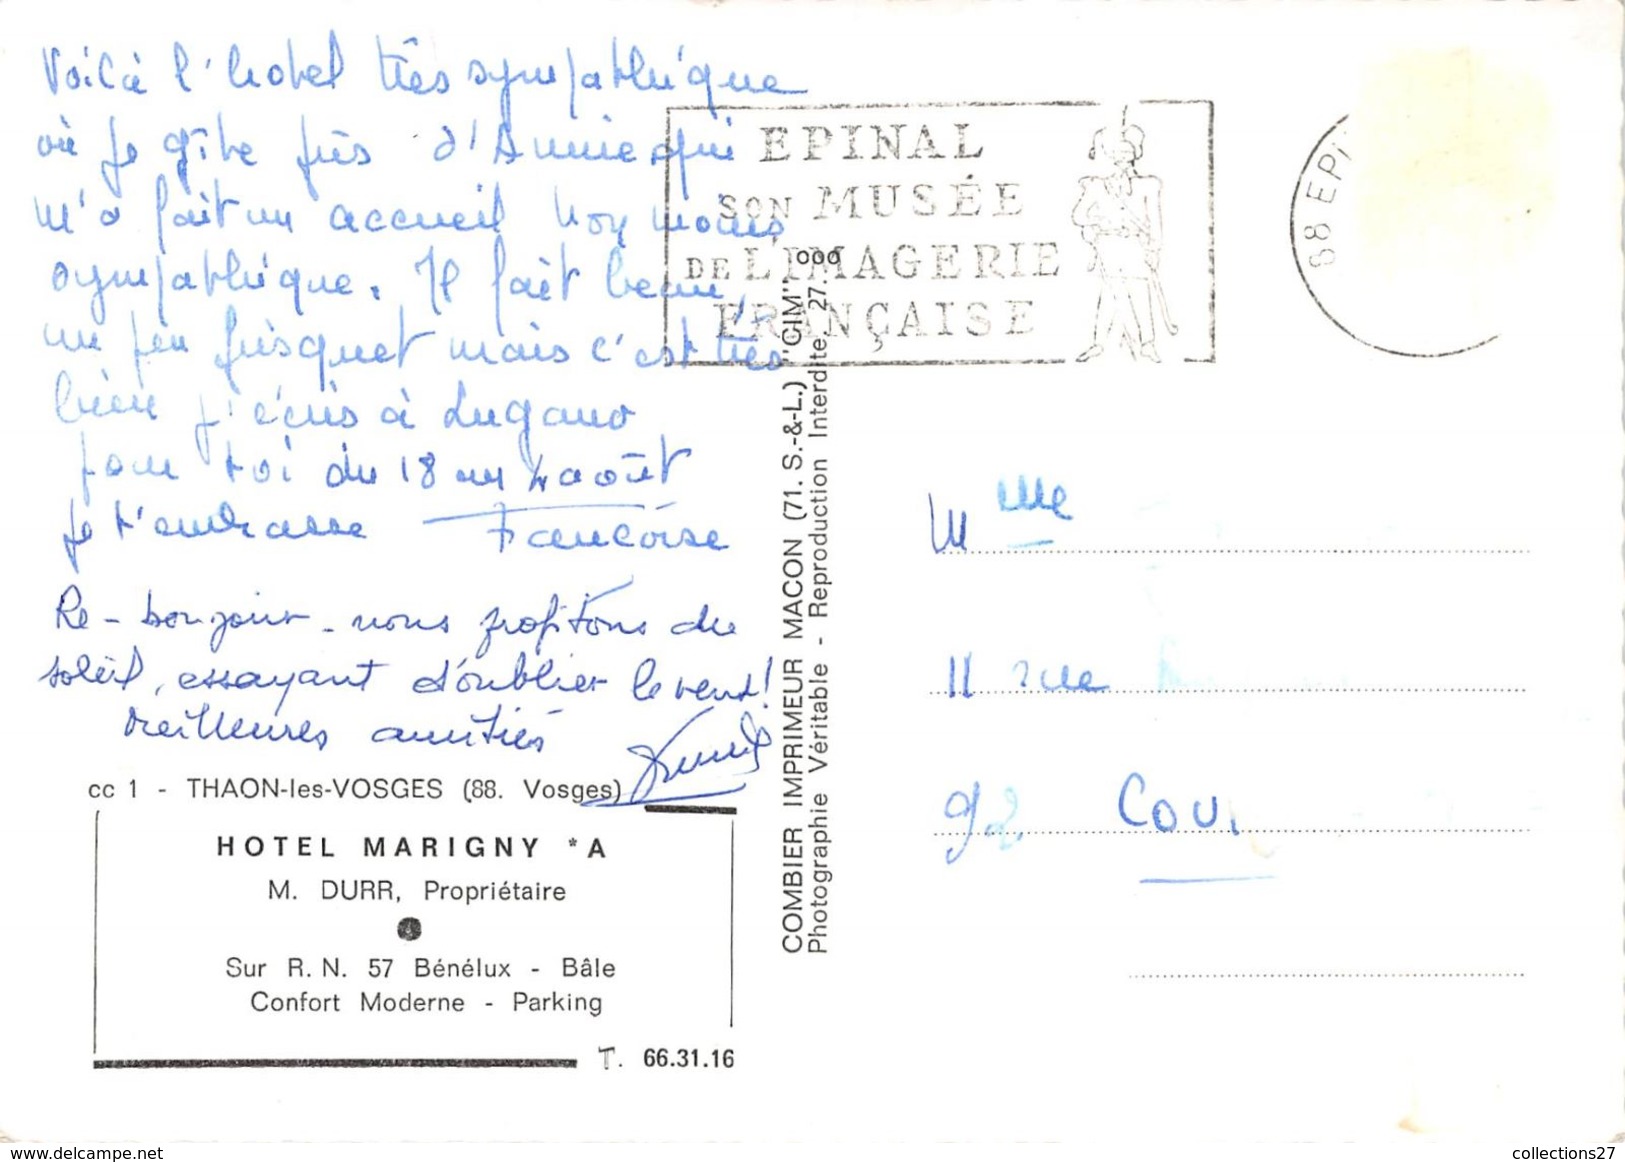 Voilà l'hotel très sympathique
où je gîte près d'Annie qui
m'a fait un accueil non moins
sympathique. Il fait beau,
un peu frisquet mais c'est très
bien j'écris à Lugano
pour toi du 18 au 4 août
je t'embrasse Francoise
Re-bonjour - nous profitons du
soleil, essayant d'oublier le vent!
Meilleures amitiés
cc 1 - THAON-les-VOSGES (88. Vosges)
HOTEL MARIGNY *A
M. DURR, Propriétaire
Sur R. N. 57 Bénélux - Bâle
Confort Moderne - Parking
T. 66.31.16
COMBIER IMPRIMEUR MACON (71. S.-&-L.) "CIM"
Photographie Véritable - Reproduction Interdite 27.
ooo
EPINAL
SON MUSÉE
DE L'IMAGERIE
FRANÇAISE
88 EPI
Mme
11 rue
92 COU
collections27